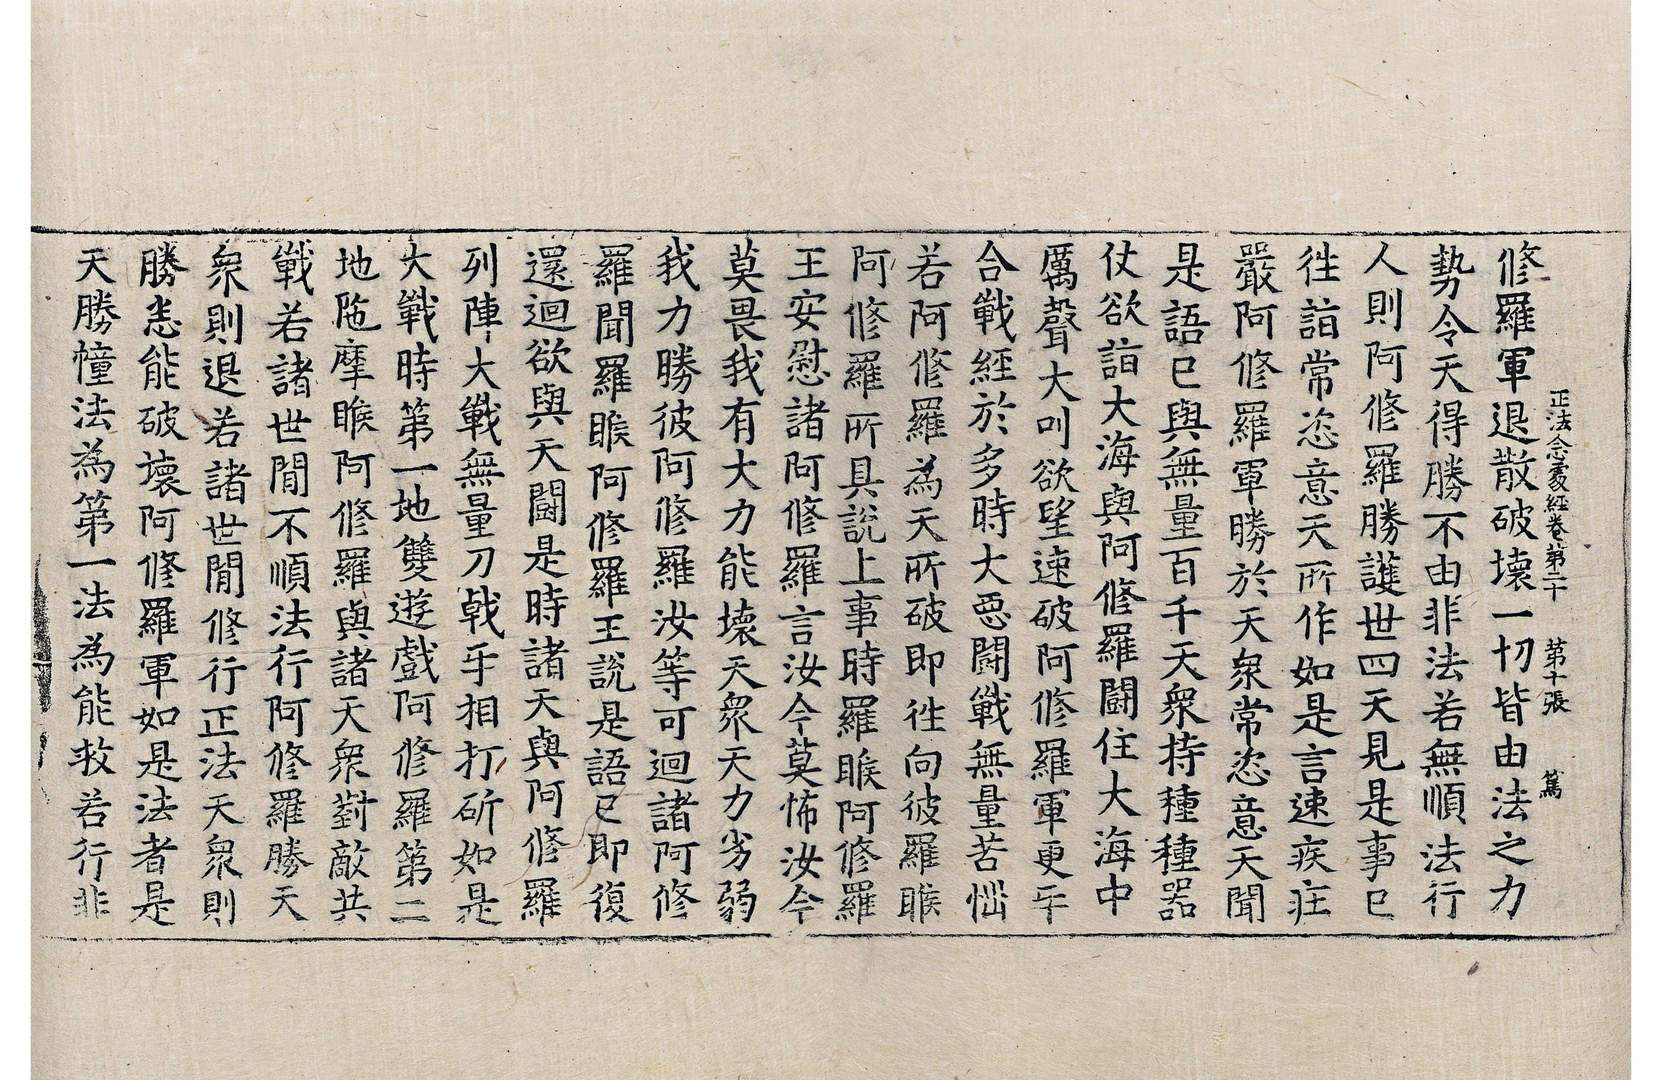 正法念處經卷第二十　第十張　篤
修羅軍退散破壞一切皆由法之力
勢令天得勝不由非法若無順法行
人則阿修羅勝護世四天見是事已
徃詣常恣意天所作如是言速疾莊
嚴阿修羅軍勝於天衆常恣意天聞
是語已與無量百千天衆持種種器
仗欲詣大海與阿修羅鬪住大海中
厲聲大叫欲望速破阿修羅軍更乎
合戰經於多時大惡鬪戰無量苦惱
若阿修羅為天所破即徃向彼羅睺
阿修羅所具說上事時羅睺阿修羅
王安慰諸阿修羅言汝今莫怖汝今
莫畏我有大力能壞天衆天力劣弱
我力勝彼阿修羅汝等可迴諸阿修
羅聞羅睺阿修羅王說是語已即復
還迴欲與天鬪是時諸天與阿修羅
列陣大戰無量刀戟乎相打斫如是
大戰時第一地雙遊戲阿修羅第二
地陁摩睺阿修羅與諸天衆對敵共
戰若諸世間不順法行阿修羅勝天
衆則退若諸世間修行正法天衆則
勝悉能破壞阿修羅軍如是法者是
天勝幢法為第一法為能救若行非